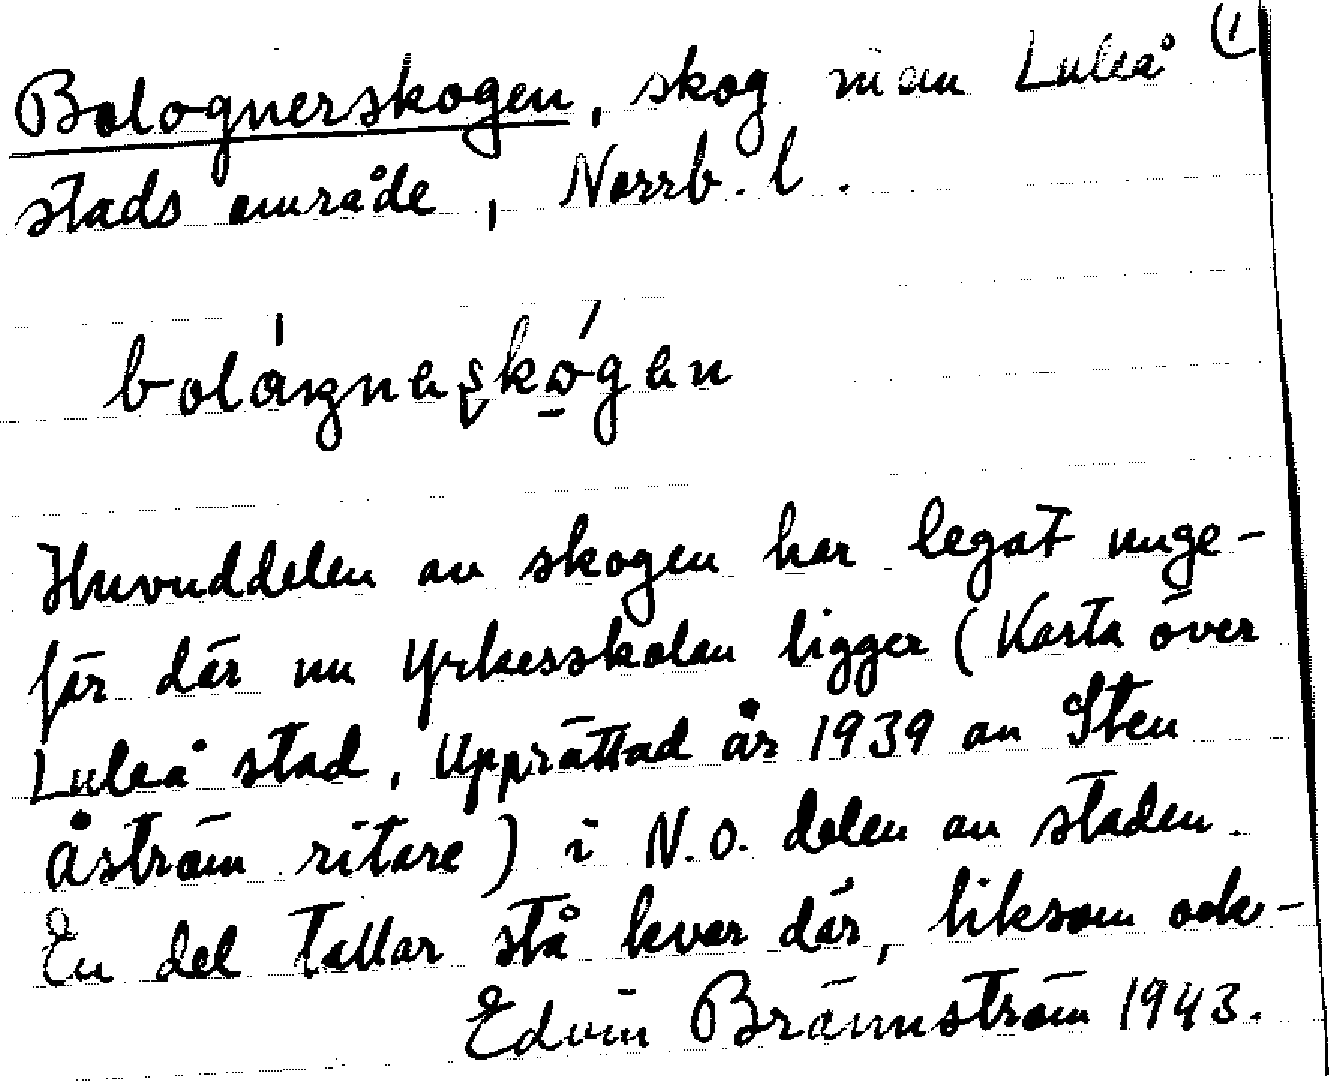 Bolognerskogen, skog inom Luleå (1
stads område, Norrb. l.
Huvuddelen av skogen har legat unge-
fär där nu Yrkesskolan ligger (Karta över
Luleå stad, Upprättad år 1939 av Sten
Åström ritare) i N.O. delen av staden.
En del tallar stå kvar där, liksom ock-
Edvin Brännström 1943.